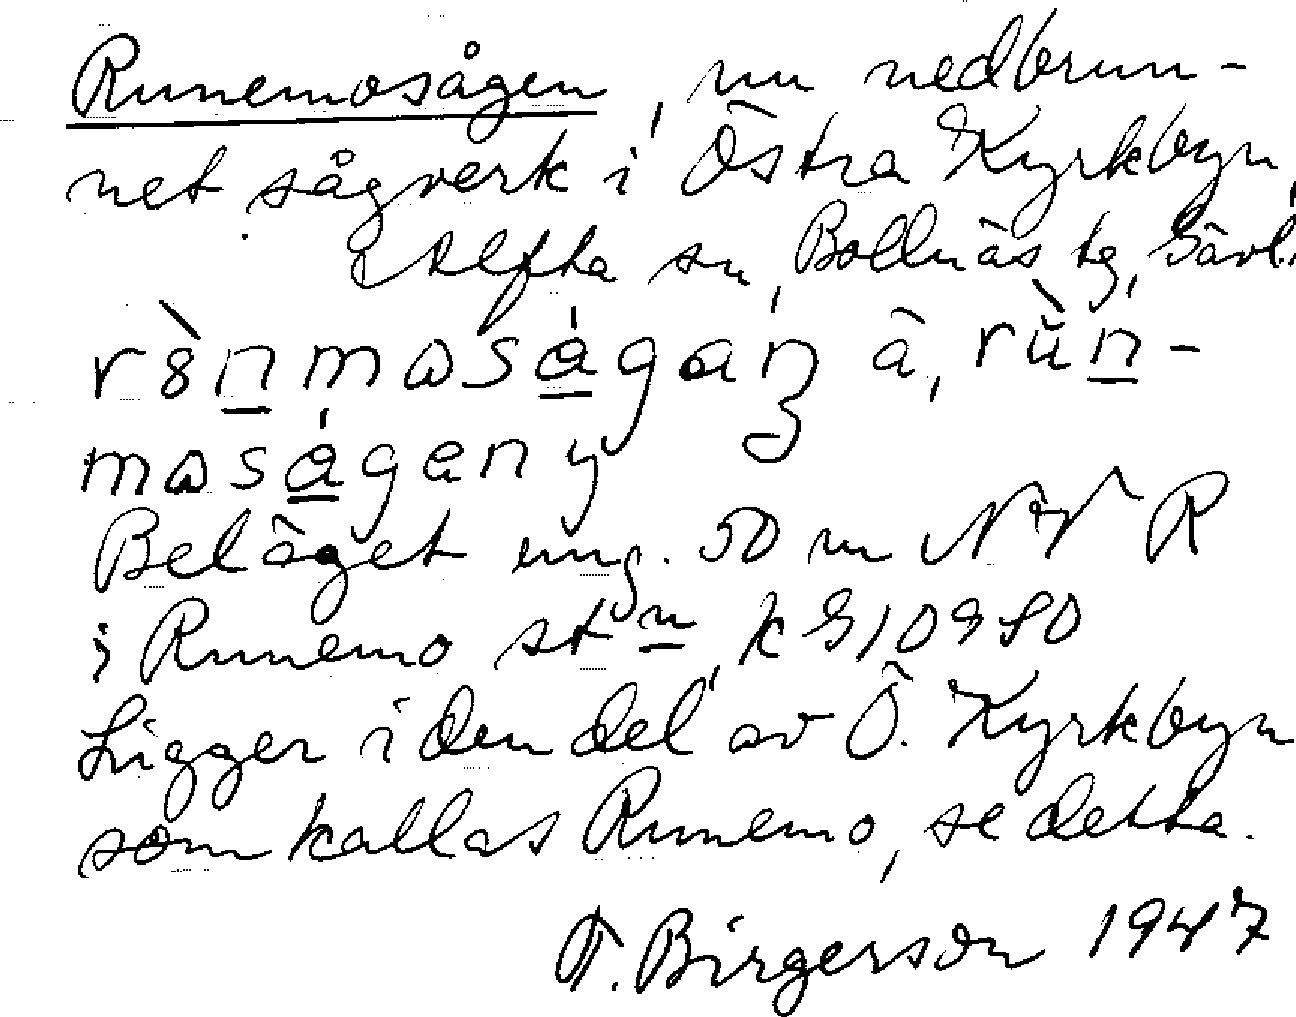 Runemosågen, nu nedbrun-
net sågverk i Östra Kyrkbyn,
Alfta sn, Bollnäs tg, Gävl.
mosågen y
Beläget ung. 50 m NNV R
i Runemo stn, k G10980
Ligger i den del av Ö. Kyrkbyn
som kallas Runemo, se detta.
T. Birgerson 1947